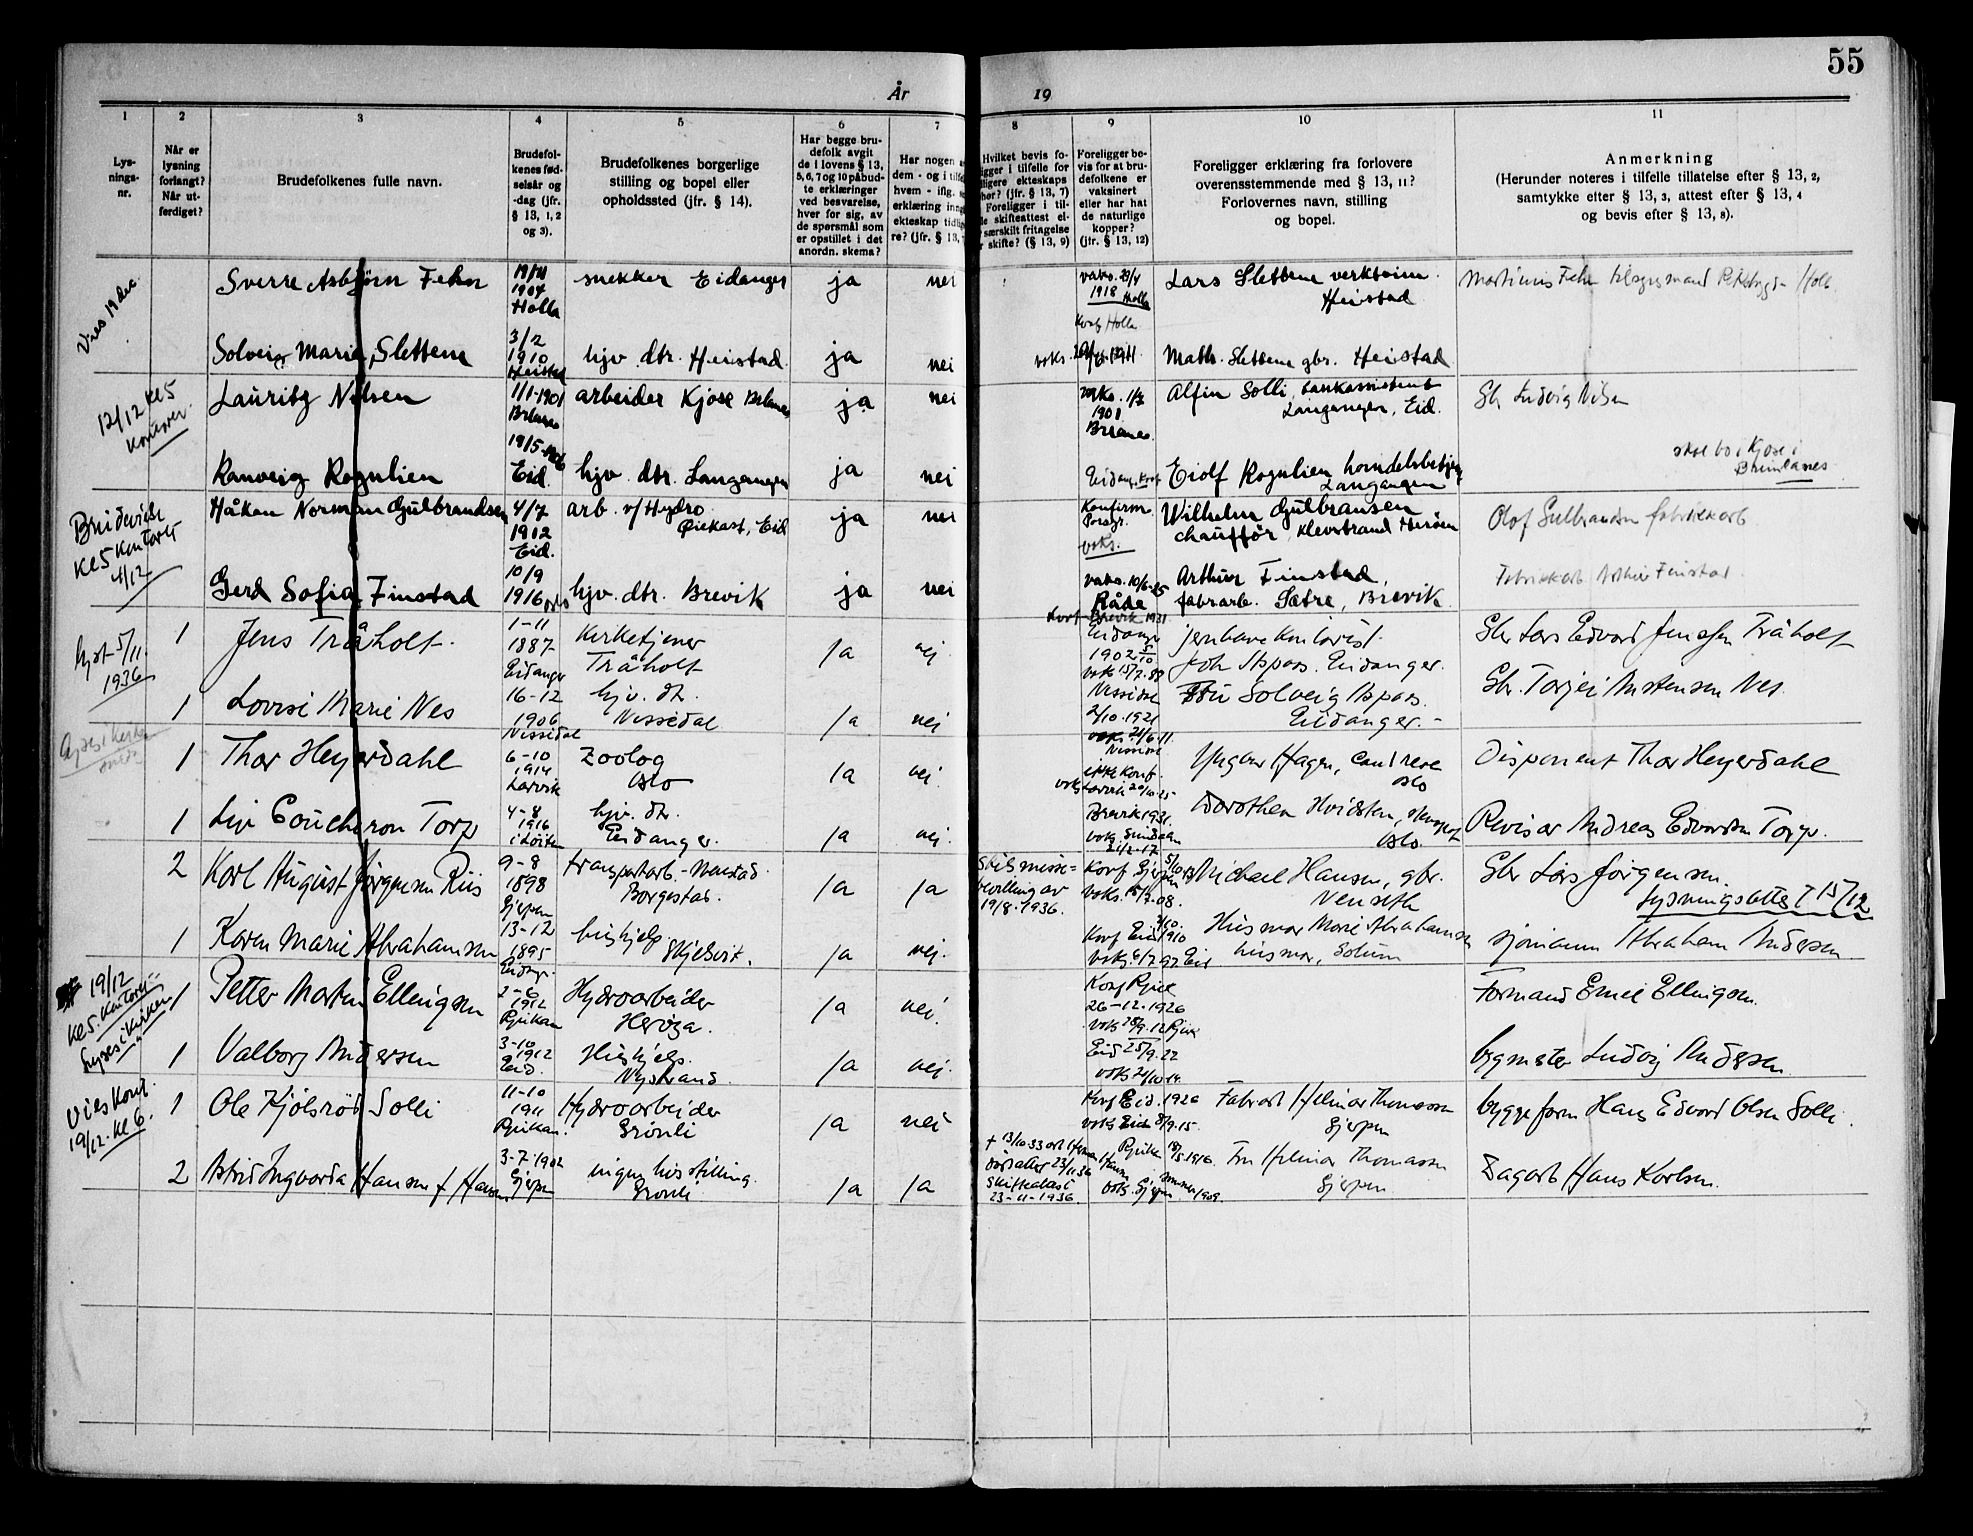 55
År 19
1 2 3 4 5 6 7 8 9 10 11
Lys-
nings-
nr.
Når er
lysning
forlangt?
Når ut-
ferdiget?
Brudefolkenes fulle navn.
Brudefol-
kenes fød-
selsår og
-dag (jfr.
§ 13, 1, 2
og 3).
Brudefolkenes borgerlige
stilling og bopel eller
opholdssted (jfr. § 14).
Har begge bru-
defolk avgit
de i lovens § 13,
5, 6, 7 og 10 påbud-
te erklæringer
ved besvarelse,
hver for sig, av
de spørsmål som
er opstillet i det
anordn. skema?
Har nogen a
dem - og i tilfe
hvem - iflg.
erklæring inng
ekteskap tidlig
re? (jfr. § 13,
Hvilket bevis fo-
igger i tilfelle for
ligere ekteskaps
hør? (jfr. § 13, 7)
Foreligger i til-
le skifteattest el-
særskilt fritagelse
skifte? (§ 13, 9)
Foreligger be-
vis for at bru-
defolkene er
vaksinert
eller har hat
de naturlige
kopper?
(jfr. § 13, 12)
Foreligger erklæring fra forlovere
overensstemmende med § 13, 11?
Forlovernes navn, stilling
og bopel.
Anmerkning
(Herunder noteres i tilfelle tillatelse efter § 13, 2,
samtykke efter § 13, 3, attest efter § 13, 4
og bevis efter § 13, 8).
Vies 19 dec.
Sverre Asbjørn Fehn
1904
Holla
snekker Eidanger
ja
nei
1918 Holla
Konf Holla
Lars Slettene
Heistad
Solveig Marie Slettene
3/2
1910
Heistad
hjv. dtr. Heistad
ja
nei
Math. Slettene gbr. Heistad
12/12 kl 5
Lauritz Nilsen
1/1-1901
Brlanes
arbeider Kjose Brlanes
ja
nei
vaks. 1/7
1901
Brlanes
Alfin Solli,
Langangen, Eid.
Gbr Ludvig Nilsen
skal bo i Kjose i
Brunlanes
Ranveig Rognlien
19/5-1906
Eid.
hjv. dtr. Langangen
ja
nei
Eidang. konf
Eiolf Rognlien handelsbetjen
Langangen
Brudevielse
kl 5 kontoret
4/12
Håken Norman Gulbrandsen
4/7
1902
Eid.
arb. v/Hydro
Eid
ja
nei
Konfirm.
Porsgr.
vaks.
Wilhelm Gulbransen
chauffør, Klevstrand Herøen
Olaf Gulbrandsen fabrikkarb
Gerd Sofia Finstad
10/9
1916 Oslo
hjv. dtr. Brevik
ja
nei
vaks. 10/6-25
Råde
Konf Brevik 1931
Arthur Finstad,
fabrarb. Sætre, Brevik
Fabrikkarb Arthur Finstad
lyst 5/11.
1936
1
Jens Tråholt.
1-11
1887
Eidanger
Kirketjener
Tråholt
ja
nei
Eidanger
1902 5/10
vaks 15/7.88
Joh Aspaas. Eidanger.
Gbr Lars Edvard Jensen Tråholt
1
Lovise Marie Nes
16-12
1906
Nissedal
hjv. dtr.
Nissedal
ja
nei
Nissedal
2/10.1921
vaks 21/6.11.
Nissedal
Fru Solveig Aspaas.
Eidanger.-
Gbr. Torjei Anstensen Nes.
1
Thor Heyerdahl
6-10
1914
Larvik
Zoolog
Oslo
ja
nei
ikke konf.
vaks Larvik 20/10.25
Yngvar Hagen, cand real
Oslo
Disponent Thor Heyerdahl
1
Liv Coucheron Torp
4-8
1916
i Løiten
hjv. dtr.
Eidanger.
ja
nei.
Brevik 1931.
21/2-17
Dorothea Hvidsten,
Oslo
Revisor Andreas Edvardsen Torp.
2
Karl August Jørgensen Riis
9-8
1898
Gjerpen
transportarb - Menstad.
Borgestad.
ja
ja
Skilsmisse-
bevilling av
19/8.1936.
Konf Gjerpen
Michael Hansen, gbr.
Nenseth
Gbr Lars Jørgensen
Lysningsattest 15/12
1
Karen Marie Abrahamsen
13-12
1895
Eidang.
hushjelp
Skjelsvik.
ja
nei.
Konf Eid 1910
vaks. 6/7.97 Eid
Husmor Marie Abrahamsen
husmor, Solum
sjømann Abraham Andersen
19/12
kl 5. kontoret
lyses i kirken
1
Petter Martin Ellingsen
1912
Rjukan
Hydroarbeider
Herøya.
ja
nei.
26-12.1926
Formand Emil Ellingsen.
1
Valborg Andersen
3-10
1912
Eid.
Hushjelp.
Nystrand.
ja
nei.
Eid 25/9.22
vaks 21/10.14
bygmester Ludvig Andersen.
Vies kont.
19/12. kl 6.
1
Ole Kjølsrød Solli
11-10
1911
Rjukan.
Hydroarbeider
Grønli
ja
nei
Konf Eid. 1926
vaks Eid 8/9.15.
Fabrarb Helmer Thomassen
Gjerpen
byggeform Hans Edvard Olsen Solli.
2
Astrid Ingvarda Hansen f Hansen
3-7-1902
Gjerpen
ingen livsstilling.
Grønli
ja
ja
Skifteattest
23-11-1936.
vaks. Gjerpen 1909.
Fru Helmer Thomassen
Gjerpen
Dagarb Hans Karlsen.